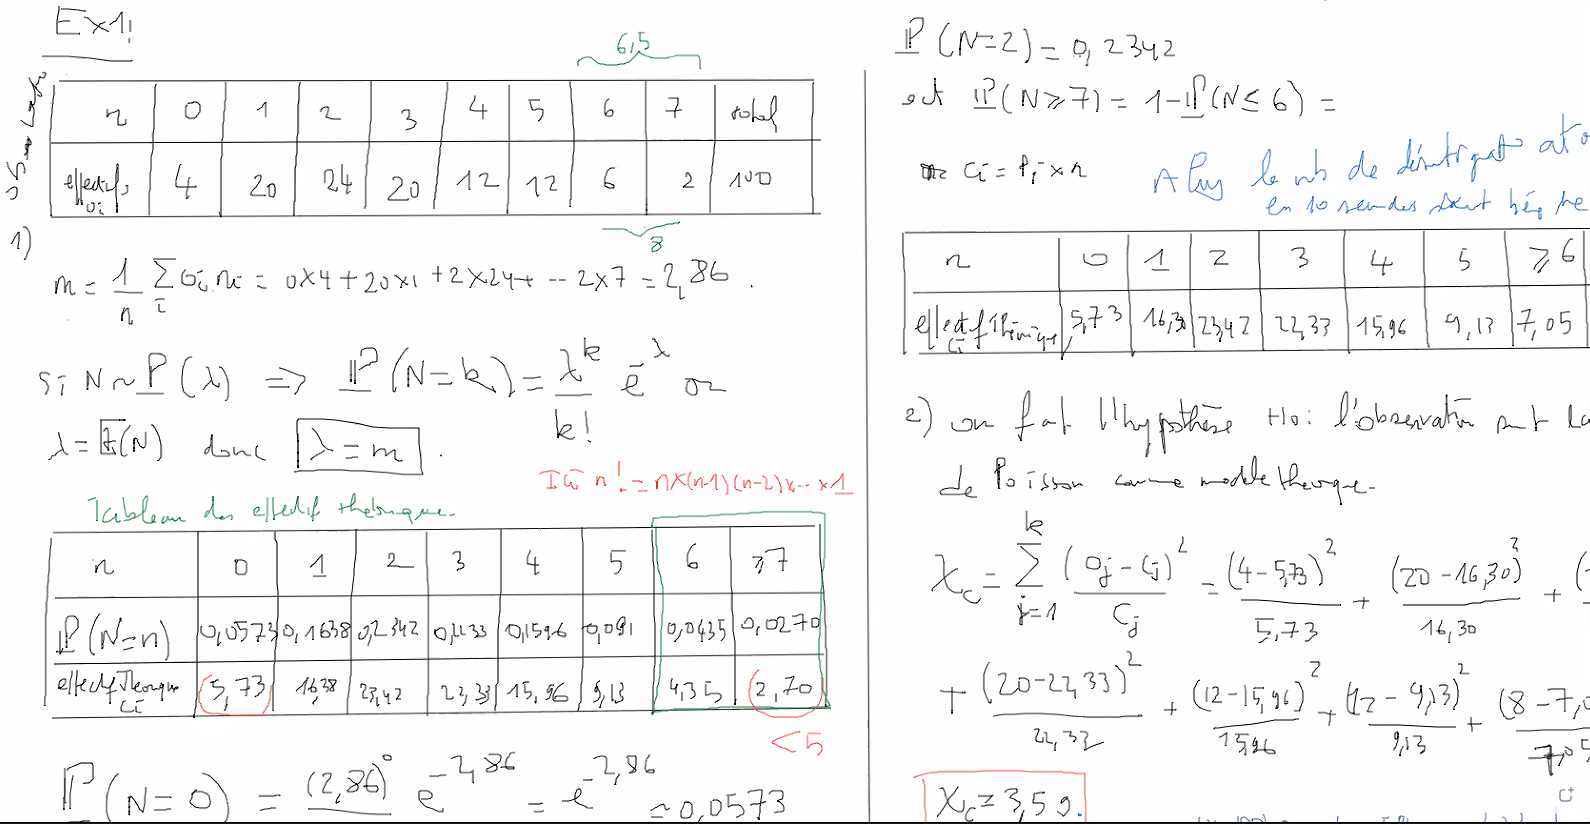 Ex1:
6,5
n 0 1 2 3 4 5 6 7 total
effectifs oi 4 20 24 20 12 12 6 2 100
8
1)
m = 1/n Σi oi ni = 0x4 + 20x1 + 2x24 + -- 2x7 = 2,86.
Si N ~ P(λ) => P(N=k) = λ^k/k! e^-λ or
λ = E(N) donc λ = m.
Ici n! = nx(n-1)(n-2)x...x1
Tableau des effectif théorique.
n 0 1 2 3 4 5 6 ≥7
P(N=n) 0,0573 0,1638 0,2342 0,2233 0,1596 0,091 0,0435 0,0270
effectif Théorique Ci 5,73 16,38 23,42 22,33 15,96 9,13 4,35 2,70
<5
P(N=0) = (2,86)^0 e^-2,86 = e^-2,86 ≈ 0,0573
P(N=2) = 0,2342
et P(N≥7) = 1-P(N≤6) =
Ci = Pi x n
le nb de
en 10 secondes
n 0 1 2 3 4 5 ≥6
effectif théorique Ci 5,73 16,30 23,42 22,33 15,96 9,13 7,05
2) on fait l'hypothèse Ho: l'observation suit La
de Poisson comme modèle théorique.
χc = Σ^k_j=1 (oj - Cj)^2/Cj = (4-5,73)^2/5,73 + (20-16,30)^2/16,30 + (
+ (20-22,33)^2/22,33 + (12-15,96)^2/15,96 + (12-9,13)^2/9,13 + (8-7,0
7,05
χc = 3,59.